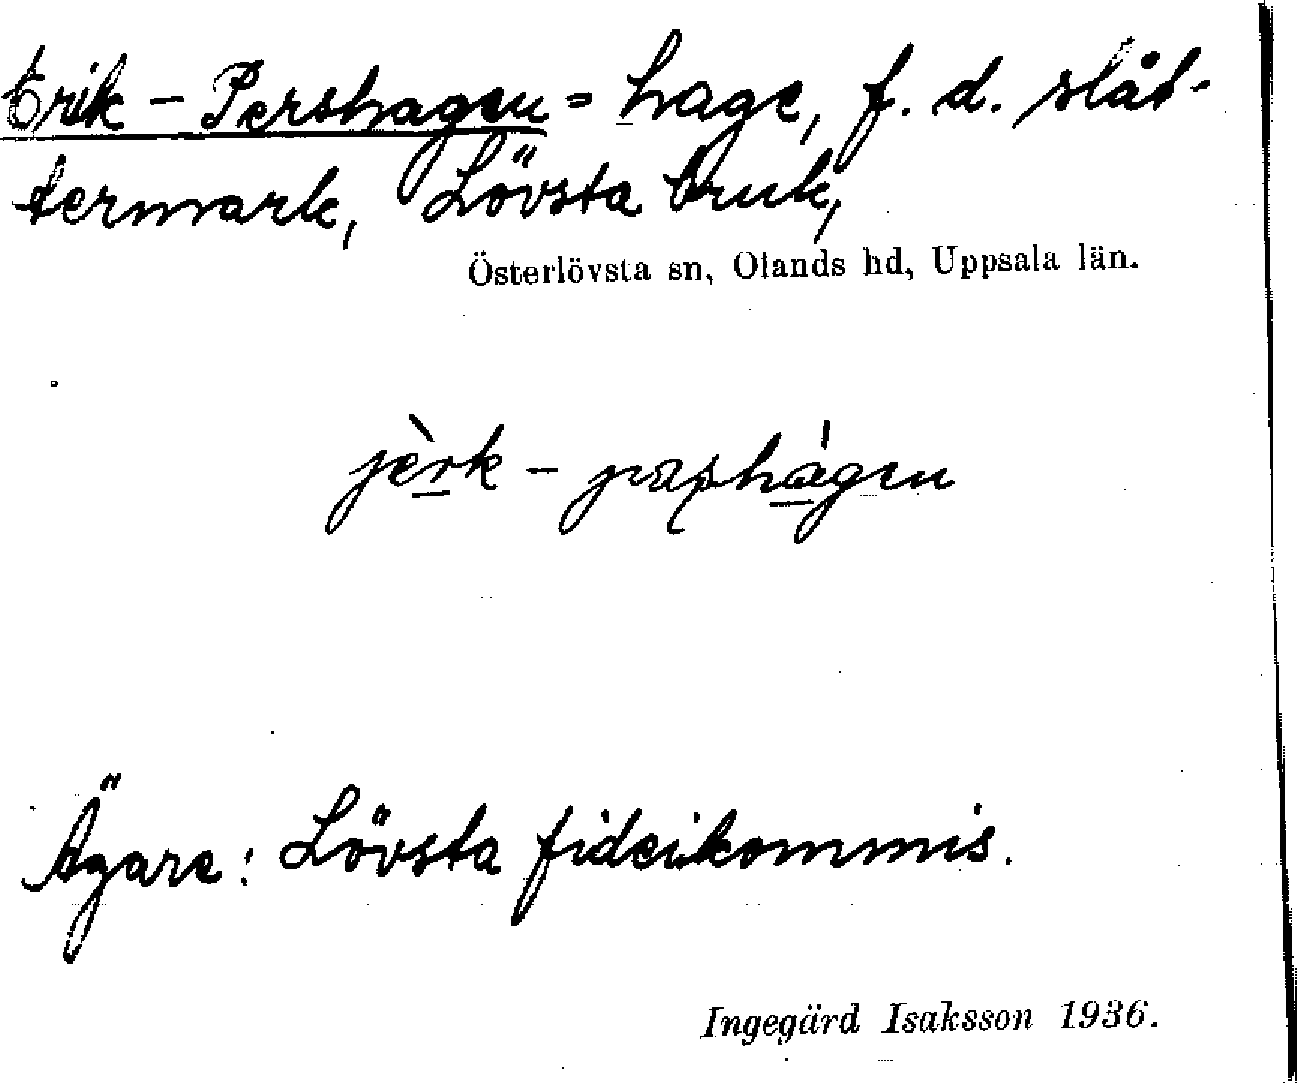 Erik-Pershagen = hage, f. d. slåt-
termark, Lövsta bruk,
Österlövsta sn, Olands hd, Uppsala län.
jèrk - pæʂhágen
Ägare: Lövsta fideikommis.
Ingegärd Isaksson 1936.